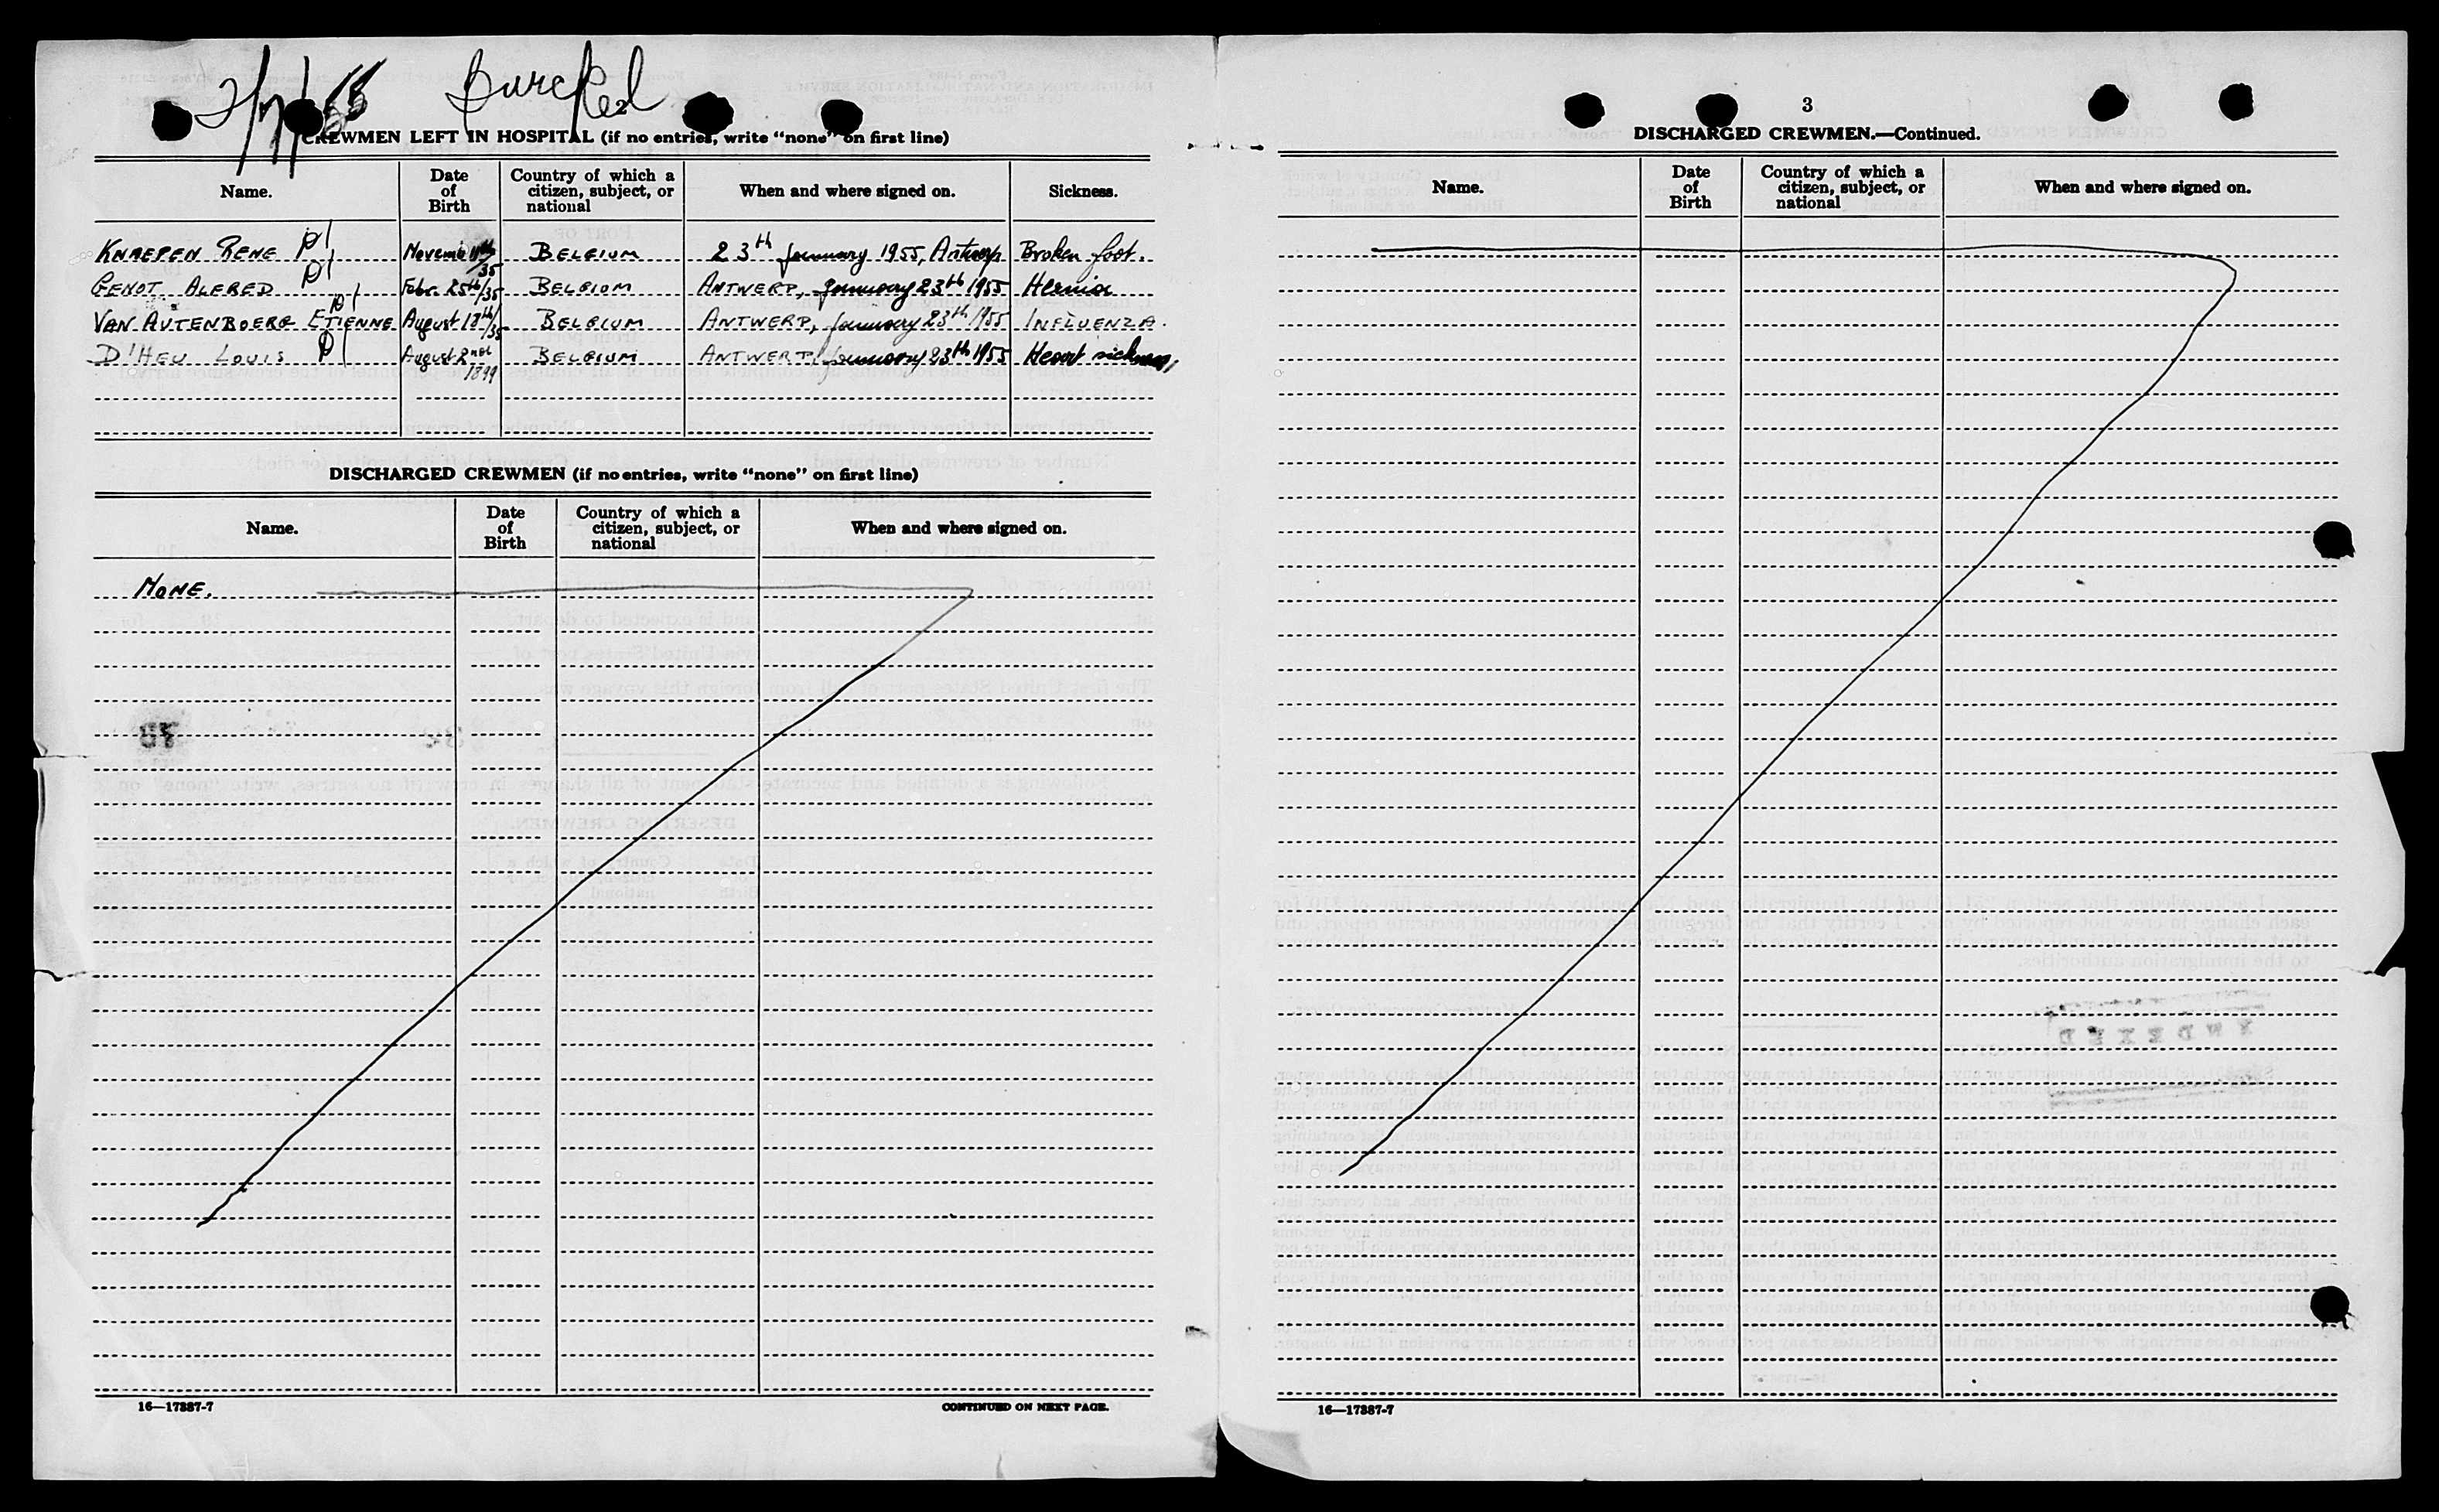 2/7/55
CREWMEN LEFT IN HOSPITAL (if no entries, write “none” on first line)
Name. Date of Birth Country of which a citizen, subject, or national When and where signed on. Sickness.
KNAEPEN RENE D1 Novemb 11th/35 BELGIUM 23th January 1955, Antwerp Broken foot.
GENOT ALFRED D1 Febr. 25th/35 BELGIUM ANTWERP, January 23th 1955 Hernia
VAN AUTENBOERG ETIENNE D1 August 18th/35 BELGIUM ANTWERP, January 23th 1955 INFLUENZA.
D'HEU LOUIS D1 August 2nd 1899 BELGIUM ANTWERP, January 23th 1955 Heart sickness,
DISCHARGED CREWMEN (if no entries, write “none” on first line)
Name. Date of Birth Country of which a citizen, subject, or national When and where signed on.
NONE.
16—17387-7 CONTINUED ON NEXT PAGE.
3
DISCHARGED CREWMEN.—Continued.
Name. Date of Birth Country of which a citizen, subject, or national When and where signed on.
INDEXED
16—17387-7